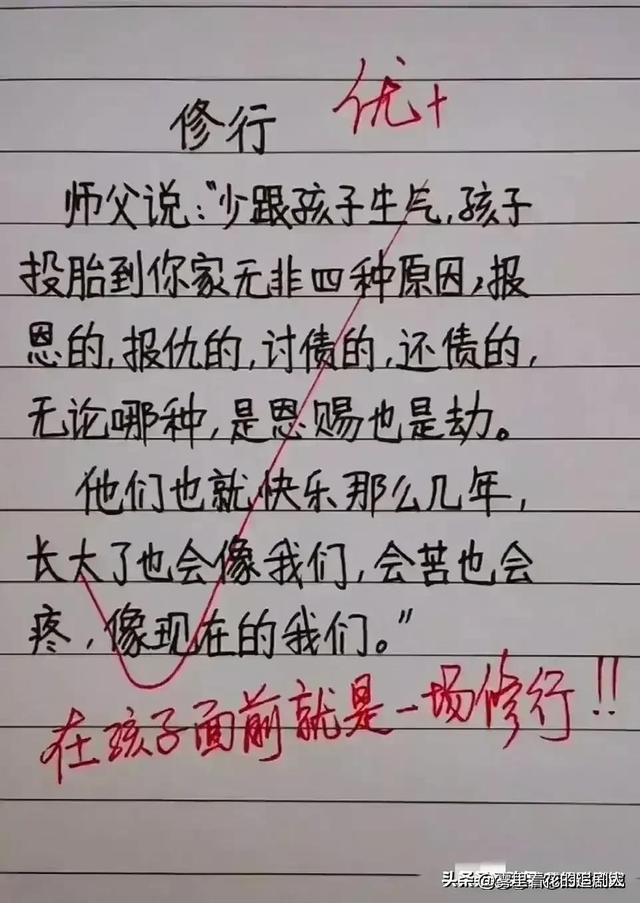 修行
优+
师父说:"少跟孩子生气,孩子
投胎到你家无非四种原因,报
恩的,报仇的,讨债的,还债的,
无论哪种,是恩赐也是劫。
他们也就快乐那么几年,
长大了也会像我们,会苦也会
疼,像现在的我们。"
在孩子面前就是一场修行!!
头条 @雾里看花的追剧人